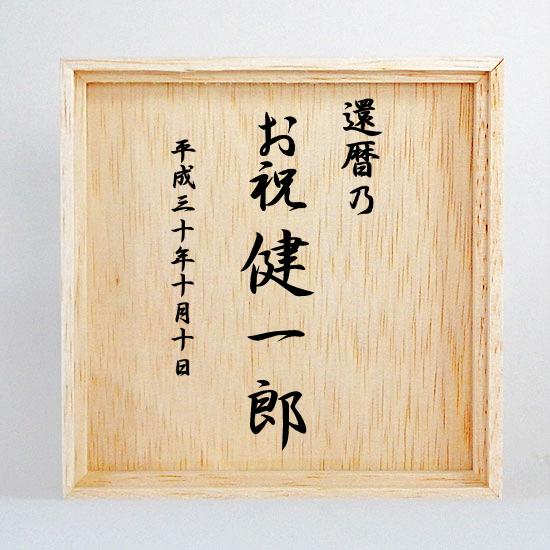 還暦乃
お祝健一郎
平成三十年十月十日